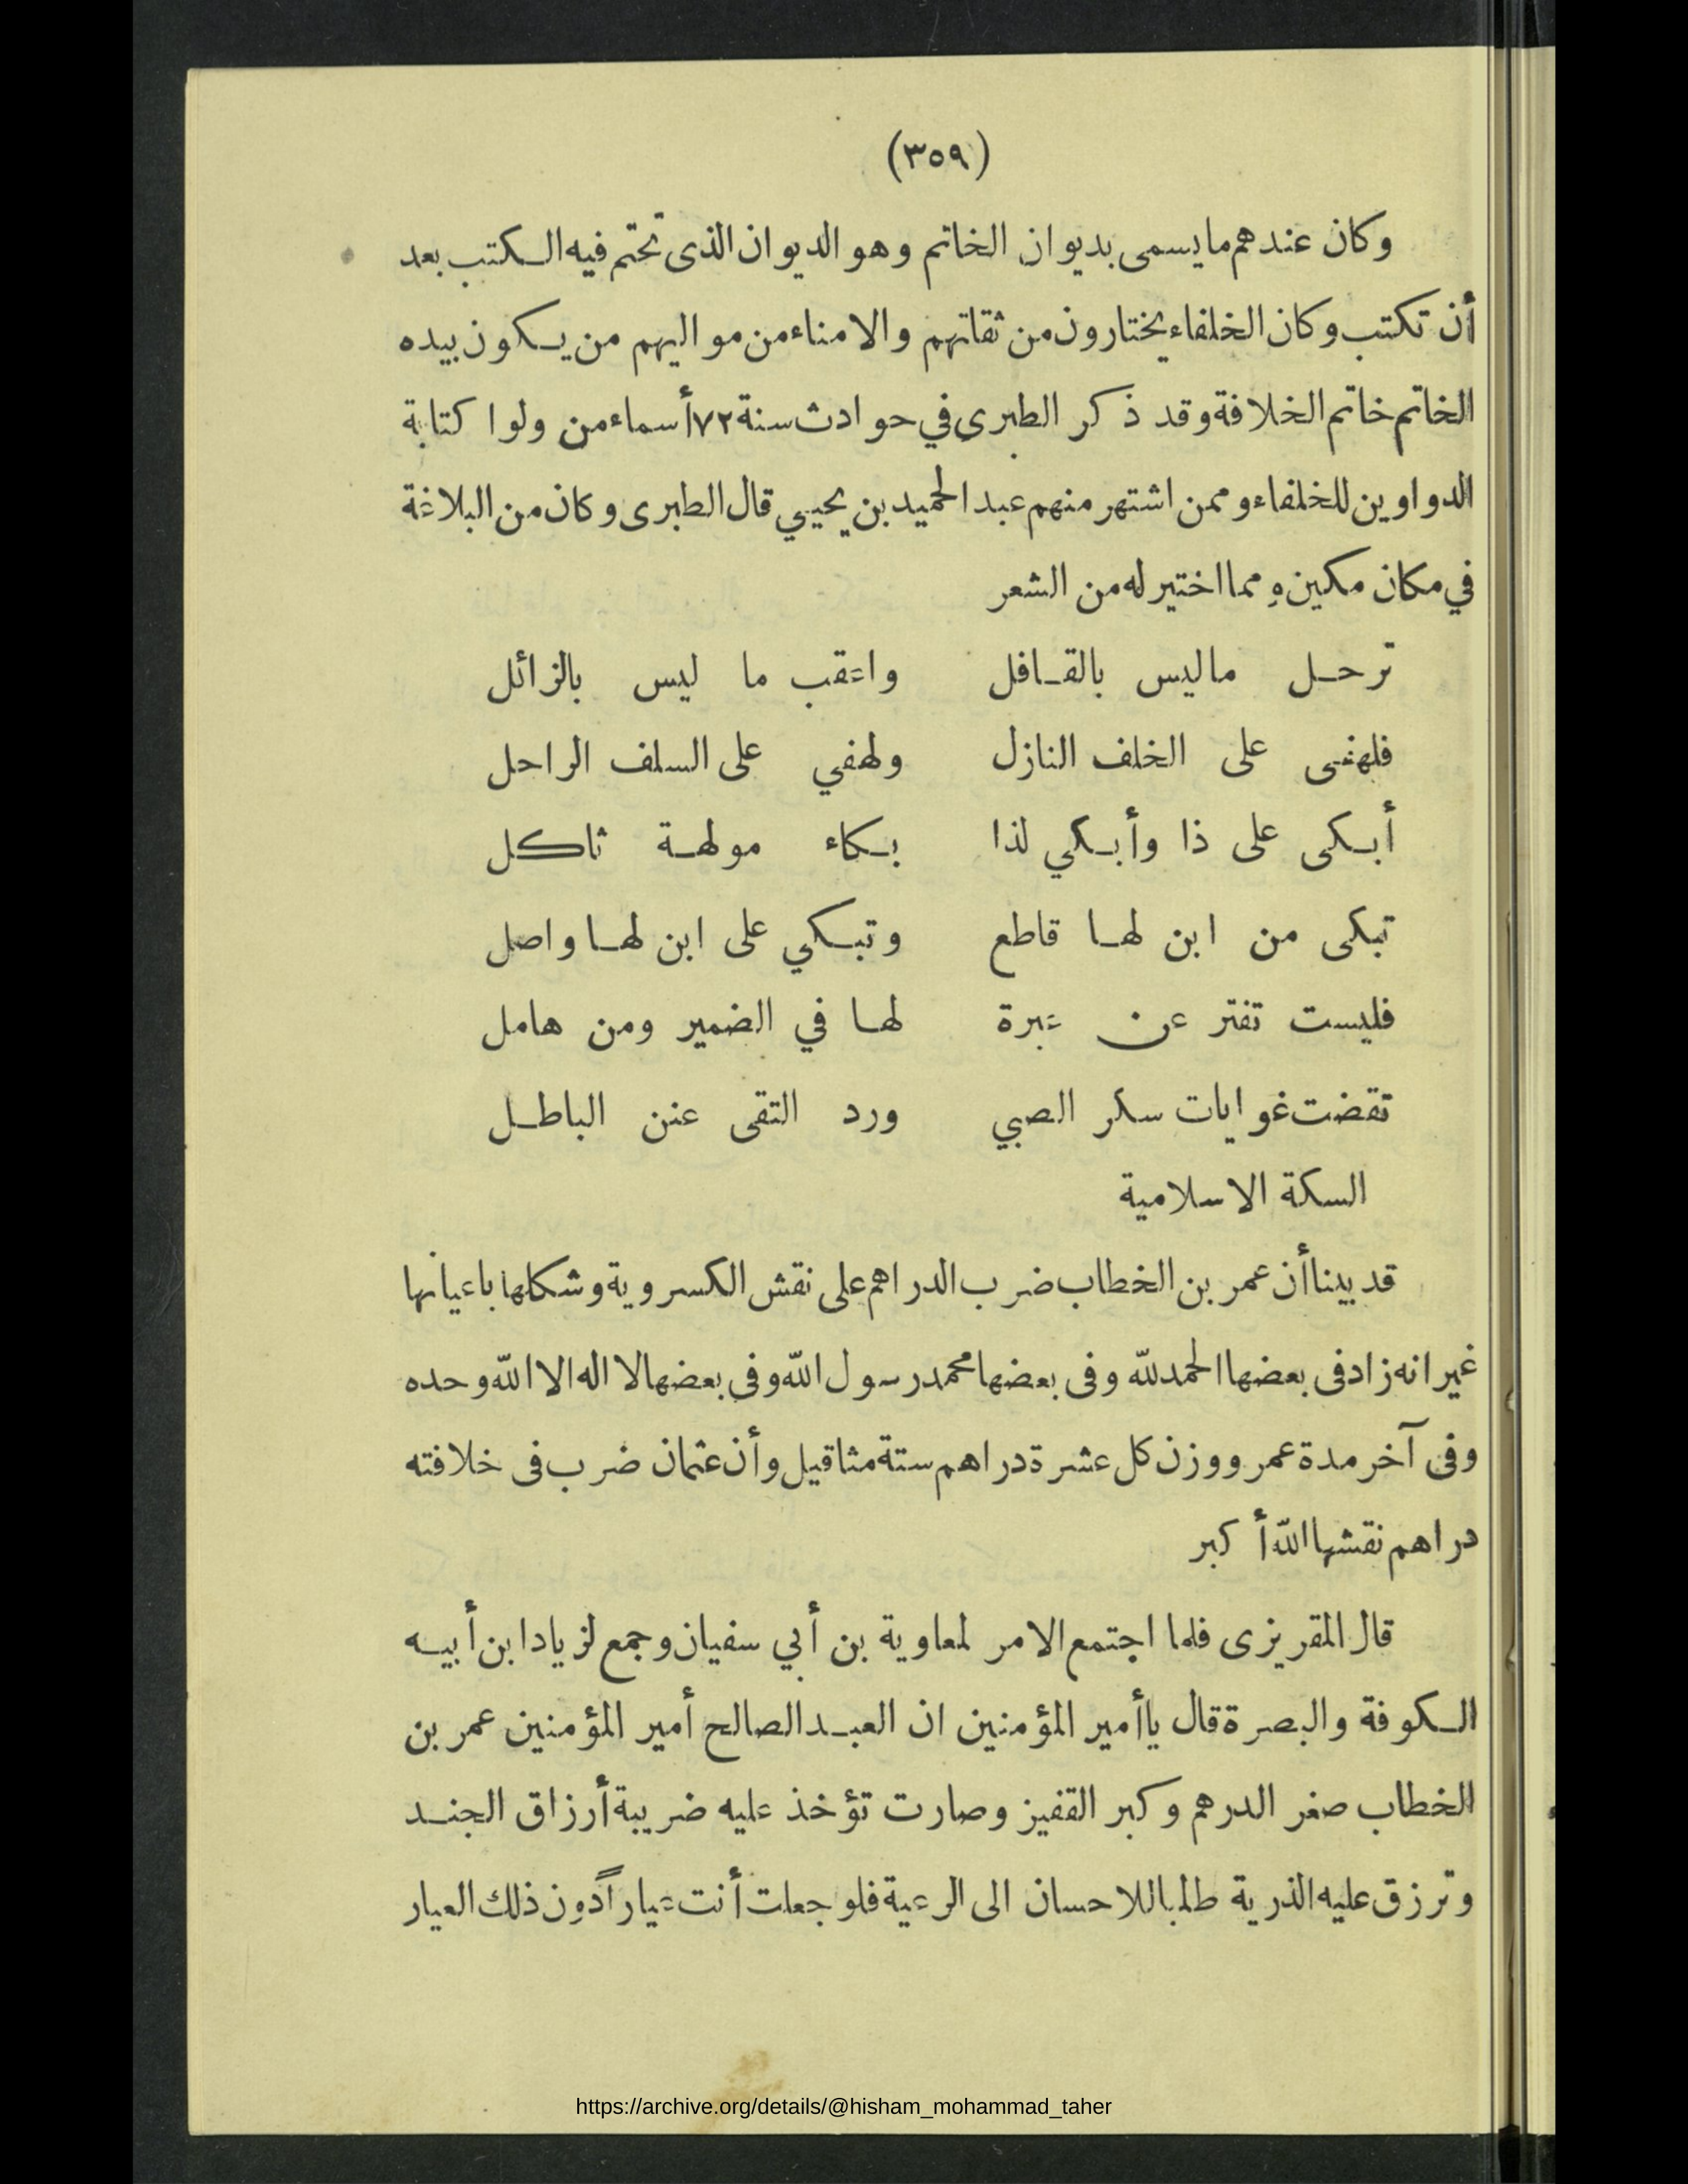 (٣٥٩)
وكان عندهم ما يسمى بديوان الخاتم وهو الديوان الذى تختم فيه الكتب بعد
أن تكتب وكان الخلفاء يختارون من ثقاتهم والامناء من مواليهم من يكون بيده
الخاتم خاتم الخلافة وقد ذكر الطبرى في حوادث سنة ٧٢ أسماء من ولوا كتابة
الدواوين للخلفاء وممن اشتهر منهم عبد الحميد بن يحيي قال الطبرى وكان من البلاغة
في مكان مكين ومما اختير له من الشعر
ترحل ما ليس بالقافل واعقب ما ليس بالزائل
فلهفى على الخلف النازل ولهفي على السلف الراحل
أبكى على ذا وأبكي لذا بكاء مولهة ثاكل
تبكى من ابن لها قاطع وتبكي على ابن لها واصل
فليست تفتر عن عبرة لها في الضمير ومن هامل
تقضت غوايات سكر الصبي ورد التقى عنن الباطل
السكة الاسلامية
قد بينا أن عمر بن الخطاب ضرب الدراهم على نقش الكسروية وشكلها باعيانها
غير انه زاد فى بعضها الحمد لله وفى بعضها محمد رسول الله وفى بعضها لا اله الا الله وحده
وفى آخر مدة عمر ووزن كل عشرة دراهم ستة مثاقيل وأن عثمان ضرب فى خلافته
دراهم نقشها الله أكبر
قال المقريزى فلما اجتمع الامر لمعاوية بن أبي سفيان وجمع لزياد ابن أبيه
الكوفة والبصرة قال يا أمير المؤمنين ان العبد الصالح أمير المؤمنين عمر بن
الخطاب صغر الدرهم وكبر القفيز وصارت تؤخذ عليه ضريبة أرزاق الجند
وترزق عليه الذرية طلبا للاحسان الى الرعية فلو جعلت أنت عياراً دون ذلك العيار
https://archive.org/details/@hisham_mohammad_taher